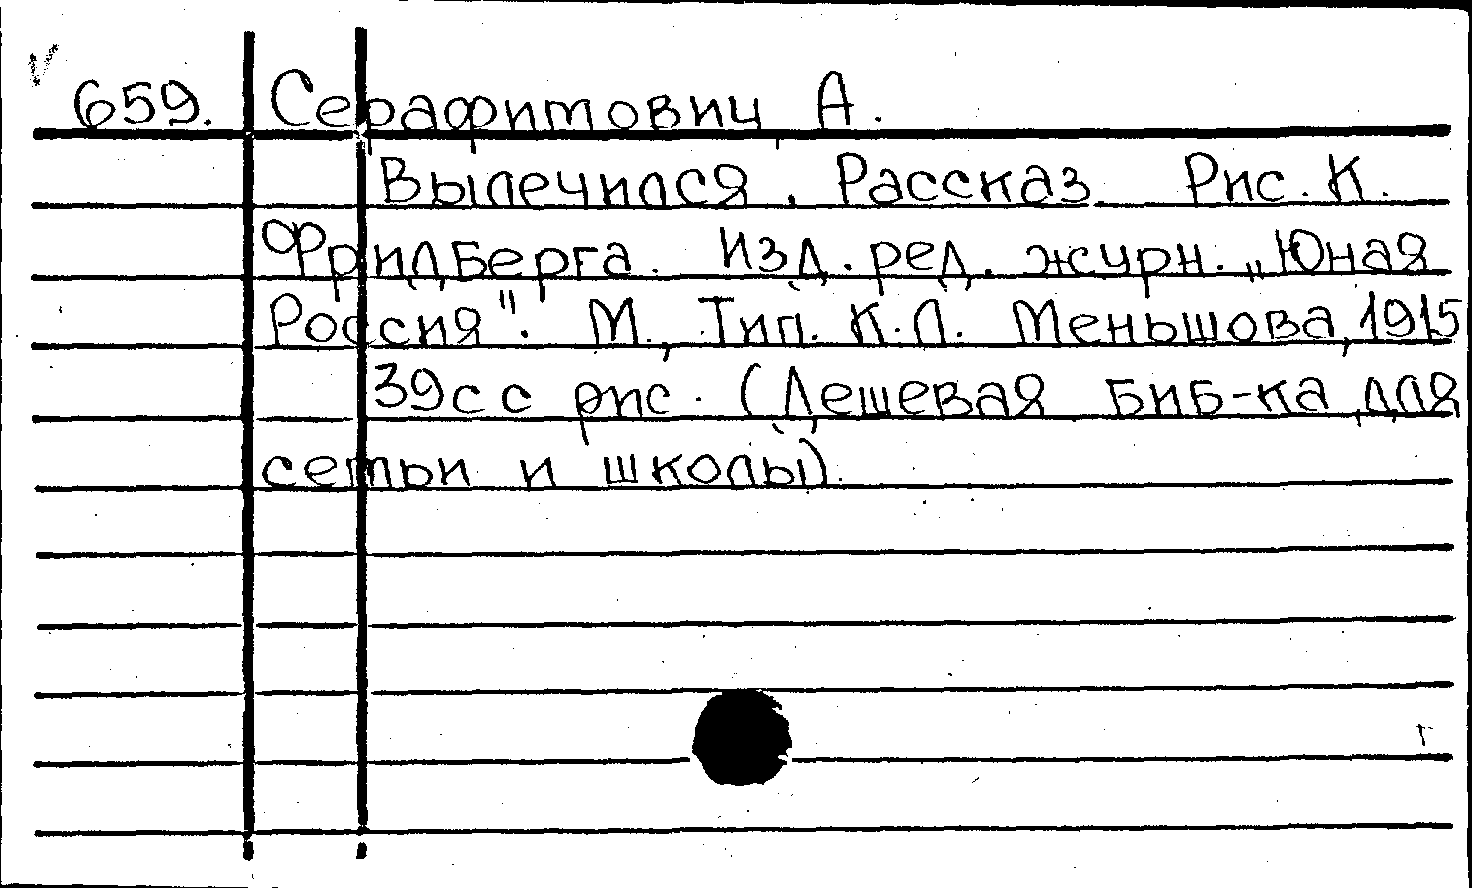 659. Серафимович А.
Вылечился. Рассказ. Рис. К.
Фридберга. Изд. ред. журн. „Юная
Россия". М., Тип. К.Л. Меньшова, 1915
39с с рис. (Дешевая биб-ка для
семьи и школы).